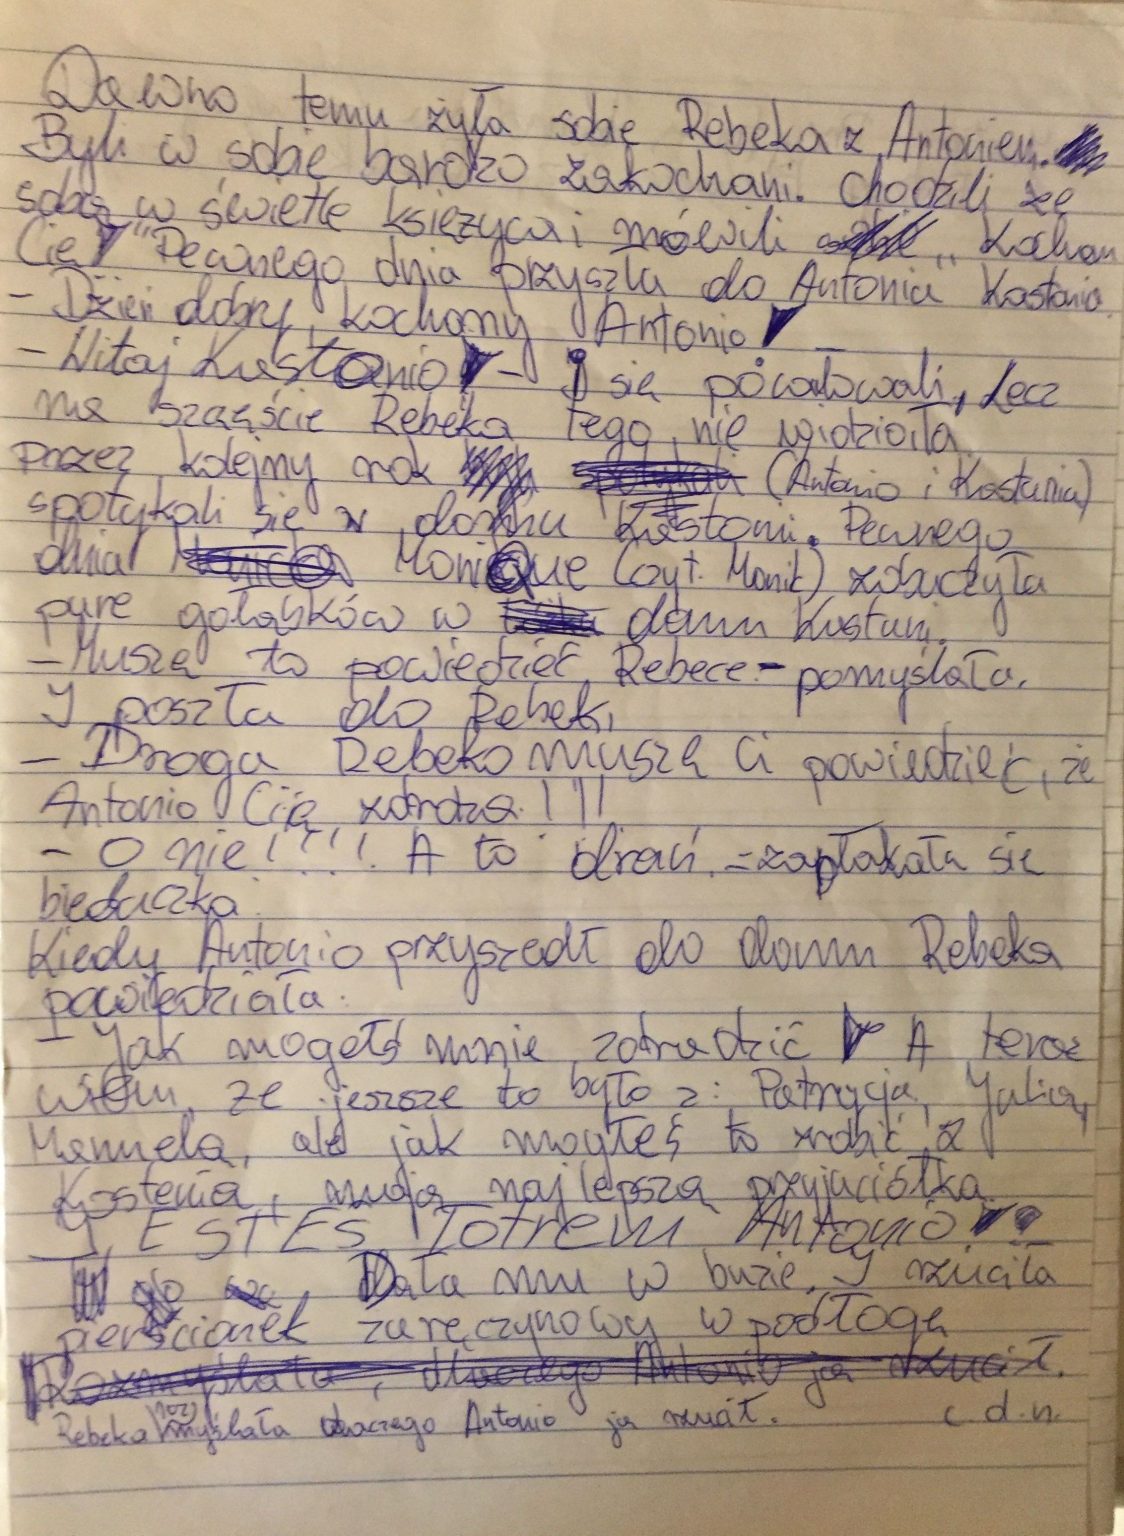 Dawno temu żyła sobie Rebeka z Antoniem.
Byli w sobie bardzo zakochani. Chodzili ze
sobą w świetle księżyca i mówili „Kocham
Cię!" Pewnego dnia przyszła do Antonia Kastania.
- Dzień dobry, kochany Antonio!
- Witaj Kastanio! - I się pocałowali, Lecz
na szczęście Rebeka tego nie widziała.
Przez kolejny rok (Antonio i Kastania)
spotykali się w domu Kastani. Pewnego
dnia Monique (czyt. Monik) zobaczyła
parę gołąbków w domu Kastani.
- Muszą to powiedzieć Rebece - pomyślała.
I poszła do Rebeki
- Droga Rebeko muszą Ci powiedzieć, że
Antonio Cię zdradza!!!
- O nie!!!! A to drań. - zapłakała się
biedaczka.
Kiedy Antonio przyszedł do domu Rebeka
powiedziała:
- Jak mogełś mnie zdradzić! A teraz
wiem, że jeszsze to było z: Patrycją, Julią,
Manuelą, ale jak mogłeś to zrobić z
Kastanią, moją najlepszą przyjaciółką.
JESTEŚ Łotrem Antonio!
Dała mu w buzie, I rzuciła
pierścionek zaręczynowy w podłogę
Rebeka rozmyślała dlaczego Antonio ją rzucił. c.d.n.